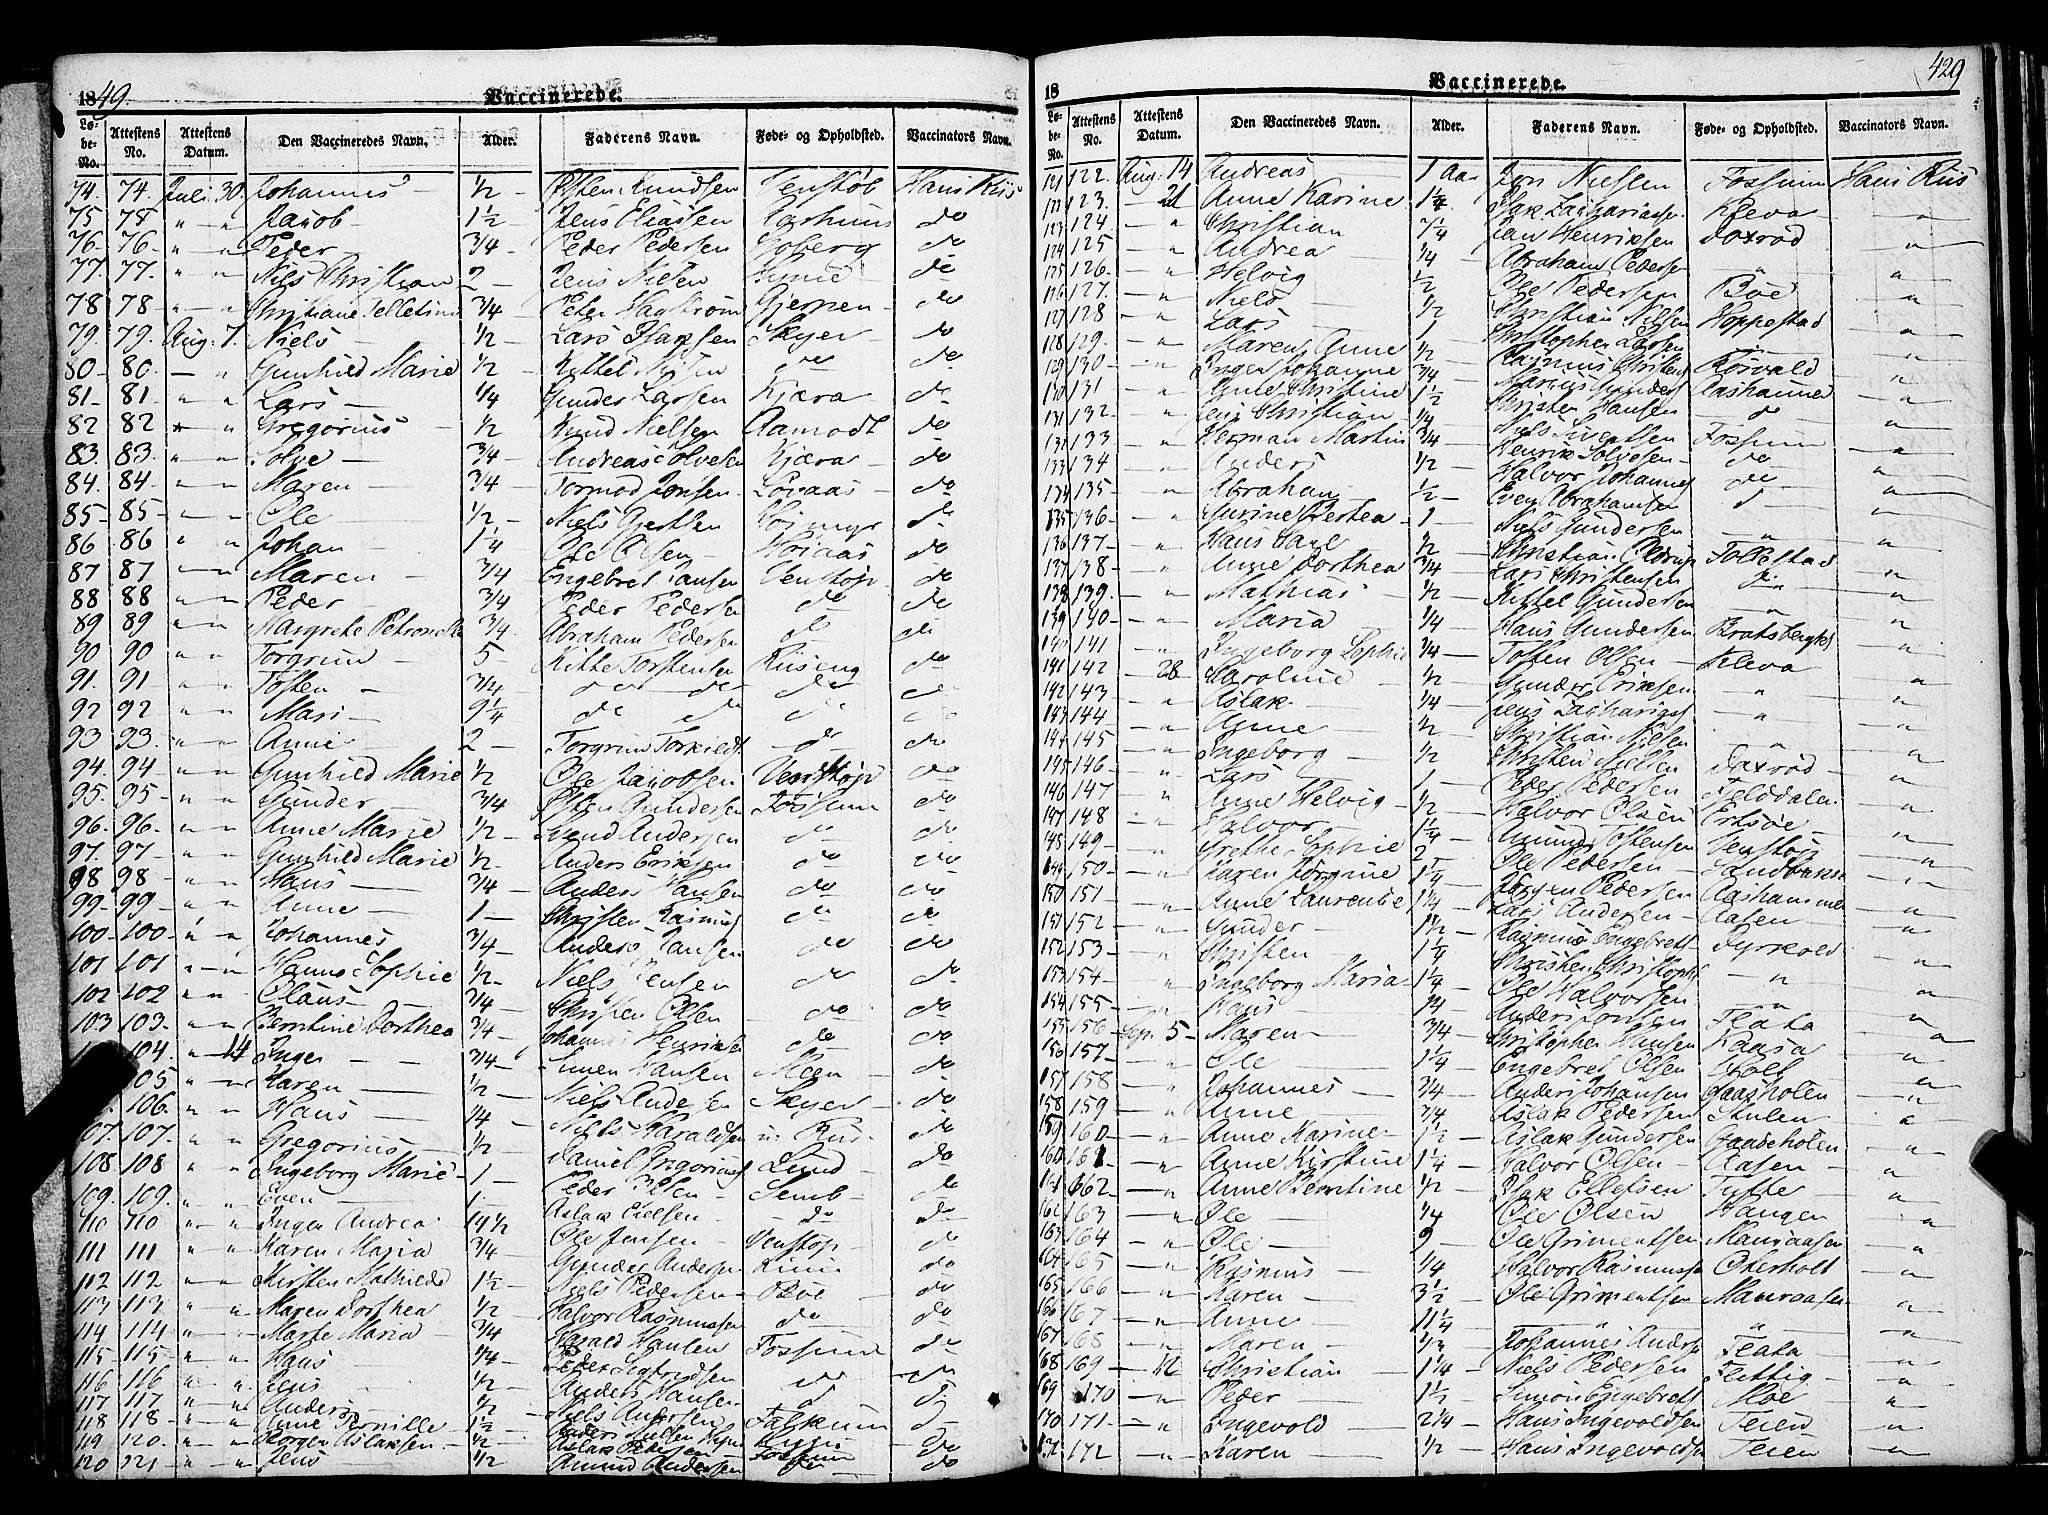 1849.
Vaccinerede.
Lø-be-No. Attestens No. Attestens Datum. Den Vaccineredes Navn. Alder. Faderens Navn. Føde- og Opholdsted. Vaccinators Navn.
74. 74. Juli 30. Johannes ½ Østen Knudsen Venstøb Hans Riis
75 78 " " Jacob 1½ Jens Eliassen Aarhuus do
76- 76- " " Peder ¾ Peder Pedersen do
77. 77. " " Niels Christian 2 Jens Nielsen do
78 78 " " Christiane ¾ Peter Hagstrøm Gjerpen do
79. 79. Aug. 7. Niels ½ Lars Isaksen Skyer do
80- 80. " Gunhild Marie ½ Kittel Nilsen do do
81- 81- " " Lars ¼ Gunder Larsen Kjæra do
82 82 " " Gregorius ½ Knud Nielsen Aamodt do
83. 83. " " Solve ¾ Andreas Solvesen Kjæra do
84. 84. " " Maren ¾ Tormod Jensen Løvaas do
85- 85- " " Ole ½ Niels Gjertsen Højmyr do
86 86 " " Johan 1¼ Ole Olsen Højaas do
87 87 " " Maren ¾ Engebret Hansen Venstøp do
88 88 " " Peder ¾ Peder Pedersen do do
89 89 " " Margrethe Petronelle ¾ Abraham Pedersen do do
90 90 " " Torgrim 5 Kitte Torstensen Riiseng do
91. 91- " " Tosten ¾ do do do do
92 92 " " Mari 9¼ do do do do
93 93. " " Anne 2 Torgrim Torkildt do do
94. 94 " " Gunhild Marie ½ Ole Jacobsen Venstøp do
95. 95- " " Gunder ¾ Østen Gundersen Fossum do
96. 96- " " Anne Marie ½ Svend Andersen do do
97. 97- " " Gunhild Marie ½ Anders Eriksen do do
98 98 " " Hans ¾ Anders Hansen do do
99- 99- " " Anne 1 Christen Rasmus do do
100- 100- " " Johannes ¾ Anders Hansen do do
101 101 " " Hanne Sophie ½ Niels Jensen do do
102 102 " " Olaus ¾ Christen Olsen do do
103 103- " " Berntine Dorthea ¾ Johannes Henriksen do do
104. " 14 Inger ¾ Simen Hansen Meen do
105 " " Karen ½ Niels Andersen Skyer do
106. " " Hans ¼ Niels Haraldsen n: Rud do
107. 107. " " Gregorius ½ Daniel Gregorius Lund do
108 108 " " Ingeborg Marie 1 Peder Olsen Lund do
109. 109. " " Even 1 Aslak Eielsen Semb do
110 110 " " Inger Andrea 14½ do do
111 111 " " Karen Maria ¾ Ole Jensen Venstøp do
112 112 " " Kirsten Mathilde 1½ Gunder Anders do
113 113 " " Maren Dorthea ½ Niels Pedersen Bøe do
114 114 " " Marte Maria ¾ Halvor Rasmussen do do
115- 115- " " Hans ¼ Harald Hansen Fossum do
116 116 " " Jens ½ Peder Sigfridsen do do
117 117 " " Anders ½ Anders Hansen do
118 118- " " Anne Pernille 1½ Niels Andersen Falkum do
119 120. " " Jørgen Aslaksen ½ Aslak Pedersen do
120 121 " " Jens ½ Amund Andersen Fossum do
18 Vaccinerede. 429
Lø-be-No. Attestens No. Attestens Datum. Den Vaccineredes Navn. Alder. Faderens Navn. Føde- og Opholdsted. Vaccinators Navn.
121 122. Aug: 14 Andreas 1 Aar Jon Nielsen Fossum Hans Riis
122 123. 21 Anne Karine 1¼ Isak Zachariass. Kleva "
123 124 " Christian 7¼ Jan Henriksen Doxrød "
124 125 " Andrea ¼ Abraham Pedersen " "
125 126- " Helvig ½ Ole Pedersen Bøe "
126 127. " Niels ½ Christian Nilsen Hoppestad "
127 128 " Lars 1 Christopher Larsen "
128 129. " Maren Anne ½ Rasmus Christens Rørvald "
129 130 " Inger Johanne ¾ Marius Gunders Aashammer "
130 131 " Anne Christine 1½ Christen Hansen do "
131 132. " Jens Christian ¼ Niels Sivertsen Fossum "
132 133 " Herman Martin ¾ Henrik Solvesen do "
133 134 " Anders ½ Halvor Johannes do "
134 135- " Abraham ½ Even Abrahamsen do "
135 136- " Gurine Berthea 1 Niels Gundersen " "
136 137- " Hans Carl ½ Christian Peders Follestad "
137 138- " Anne Dorthea ¾ Lars Christensen do "
138 139. " Mathias ½ Kittel Gundersen " "
139 140- " Maria ¼ Hans Gundersen Bratsbergkl. "
140 141 " Ingeborg Sophie ¾ Tosten Olsen Kleva "
141 142 28 Karoline ½ Gunder Eriksen " "
142 143 " Aslak ¼ Jens Zacharias " "
143 144 " Anne ½ Christian Nielsen " "
144 145 " Ingeborg ½ Christen Nielsen Doxrød "
145 146- " Lars 1 Peder Pedersen Felddalen "
146 147 " Anne Helvig ½ Halvor Olsen Eriksøe "
147 148 " Halvor 1¼ Amund Tostensen Venstøp "
148 149- " Grethe Sophie 2 Ole Pedersen "
149 150- " Karen Jørgine 1¼ Jørgen Pedersen Aashammer "
150 151 " Anne Laurentse 1¼ Lars Andersen Aasen "
151 152 " Gunder 1½ Rasmus Engebrets "
152 153 " Christen 1¼ Christen Christophs " "
153 154- " Ingeborg Maria 1¼ Ole Halvorsen " "
154 155 " Hans ¼ Anders Jonsen Flata "
155 156 Sep. 5 Maren ¾ Christopher Hansen Kaasa "
156 157- " Ole 1¼ Engebret Olsen "
157 158 " Johannes ¾ Anders Johansen Gaasholen "
158 159 " Anne ¾ Aslak Pedersen Stulen "
159 160- " Anne Karine 1½ Aslak Gundersen Gaaseholen "
160 161 " Anne Kirstine 1¼ Halvor Olsen Aasen "
161 162- " Anne Berntine ½ Isak Ellefsen Tufte "
162 163 " Ole ¼ Ole Olsen Haugen "
163 164 " Ole 9 Ole Grimentsen Mauraasen "
164 165 " Rasmus ¼ Halvor Rasmuss. Oterholt "
165 166 " Karen 3½ Ole Grimentsen Mauraasen "
166 167 " Anne 11¼ " "
167 168 " Maren ½ Johannes Anders Flata "
168 169 12 Christian 1¼ Niels Pedersen Flittig "
169 170 " Peder 1½ Simon Engebrets Moe "
170 171 " Ingevold 2¼ Hans Ingevoldsen Teien "
171 172 " Karen ½ Hans Ingevoldsen Teien "